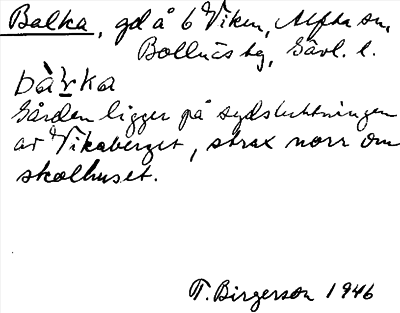 Balka, gd å 6 Viken, Alfta sn,
Bollnäs tg, Gävl. l.
bàḷka
Gården ligger på sydsluttningen
av Vikaberget, strax norr om
skolhuset.
T. Birgerson 1946